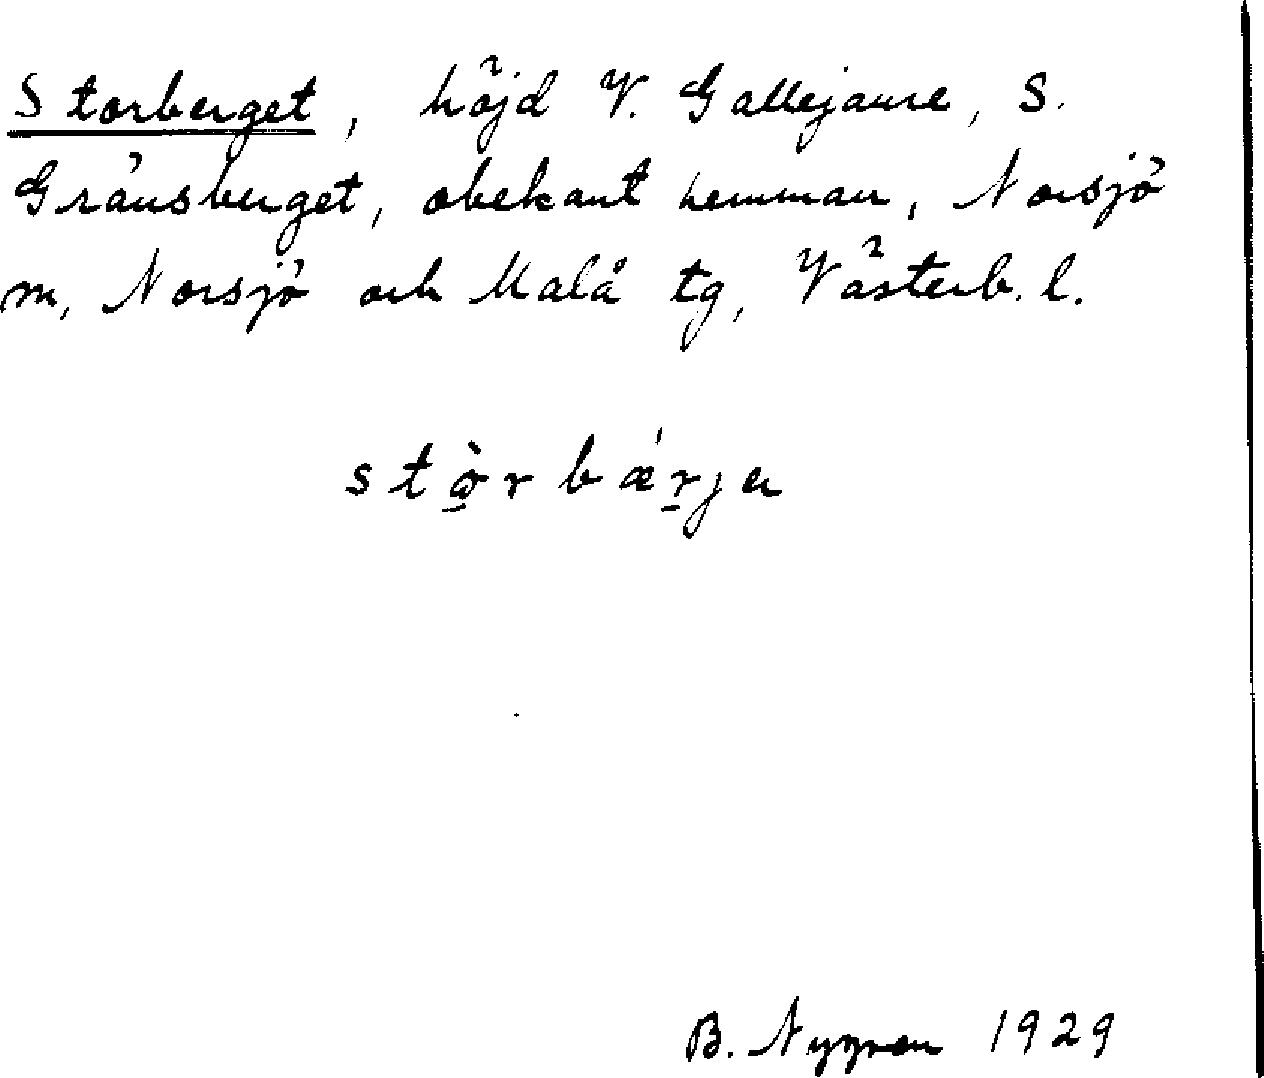 Storberget, höjd V. Gallejaure, S.
Gränsberget, obekant hemman, Norsjö
m, Norsjö och Malå tg, Västerb. l.
stò̱rbǽṟjɐ
B. Nygren 1929